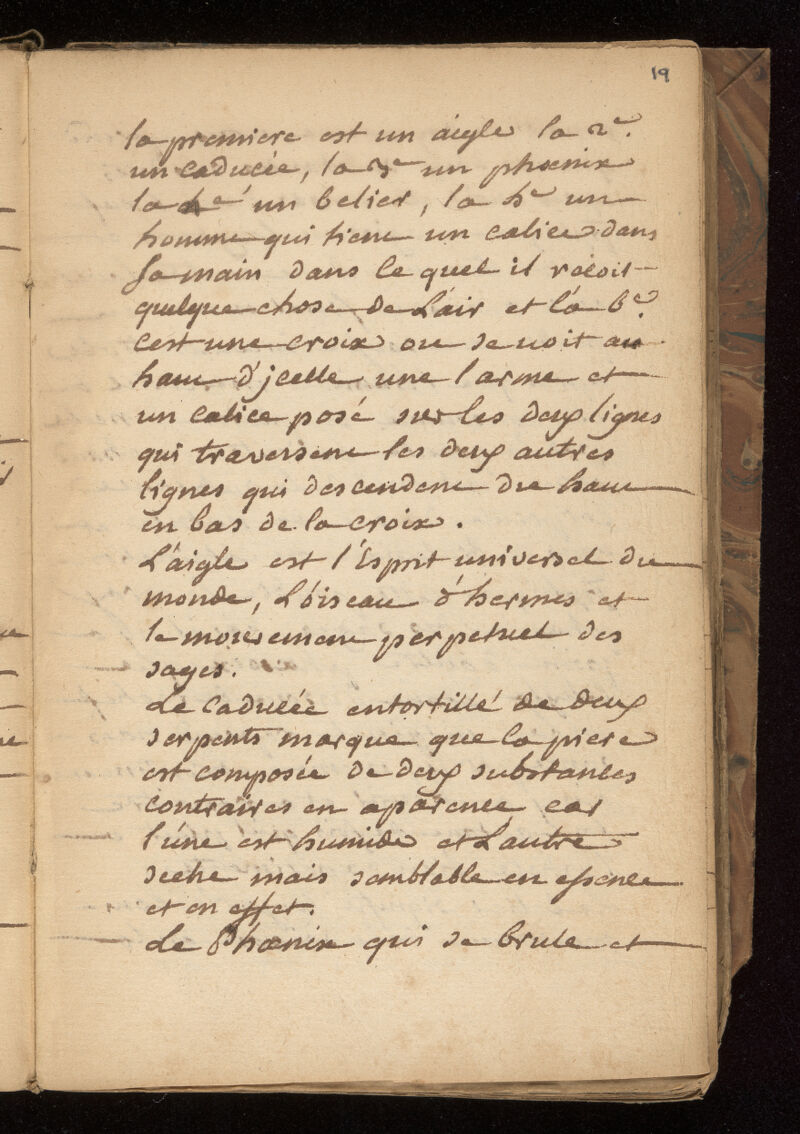 19
la premiere est un áigle la 2e.
un caducée, la 3e un phœnix
la 4e un belier, la 5e un
homme qui tient un calice dans
sa main dans le quel il recoit
quelque chose de L'air et la 6e.
cest une croix ou se uoit au
haut d'jcelle une larme et
un calice posé sur les deux lignes
qui traversent les deux autres
lignes qui descendent du haut
en bas de la croix.
L'aigle est l'Esprit universel du
monde, L'oiseau d'hermes et
le mouvement perpetuel des
sages.
Le Caducée entortillé de deux
serpents marque que la piere
est composée de deux substances
contraires en aparence car
l'une est humide et Lautre
seche mais semblable en essence
et en effet.
Le Phœnix qui se brule et